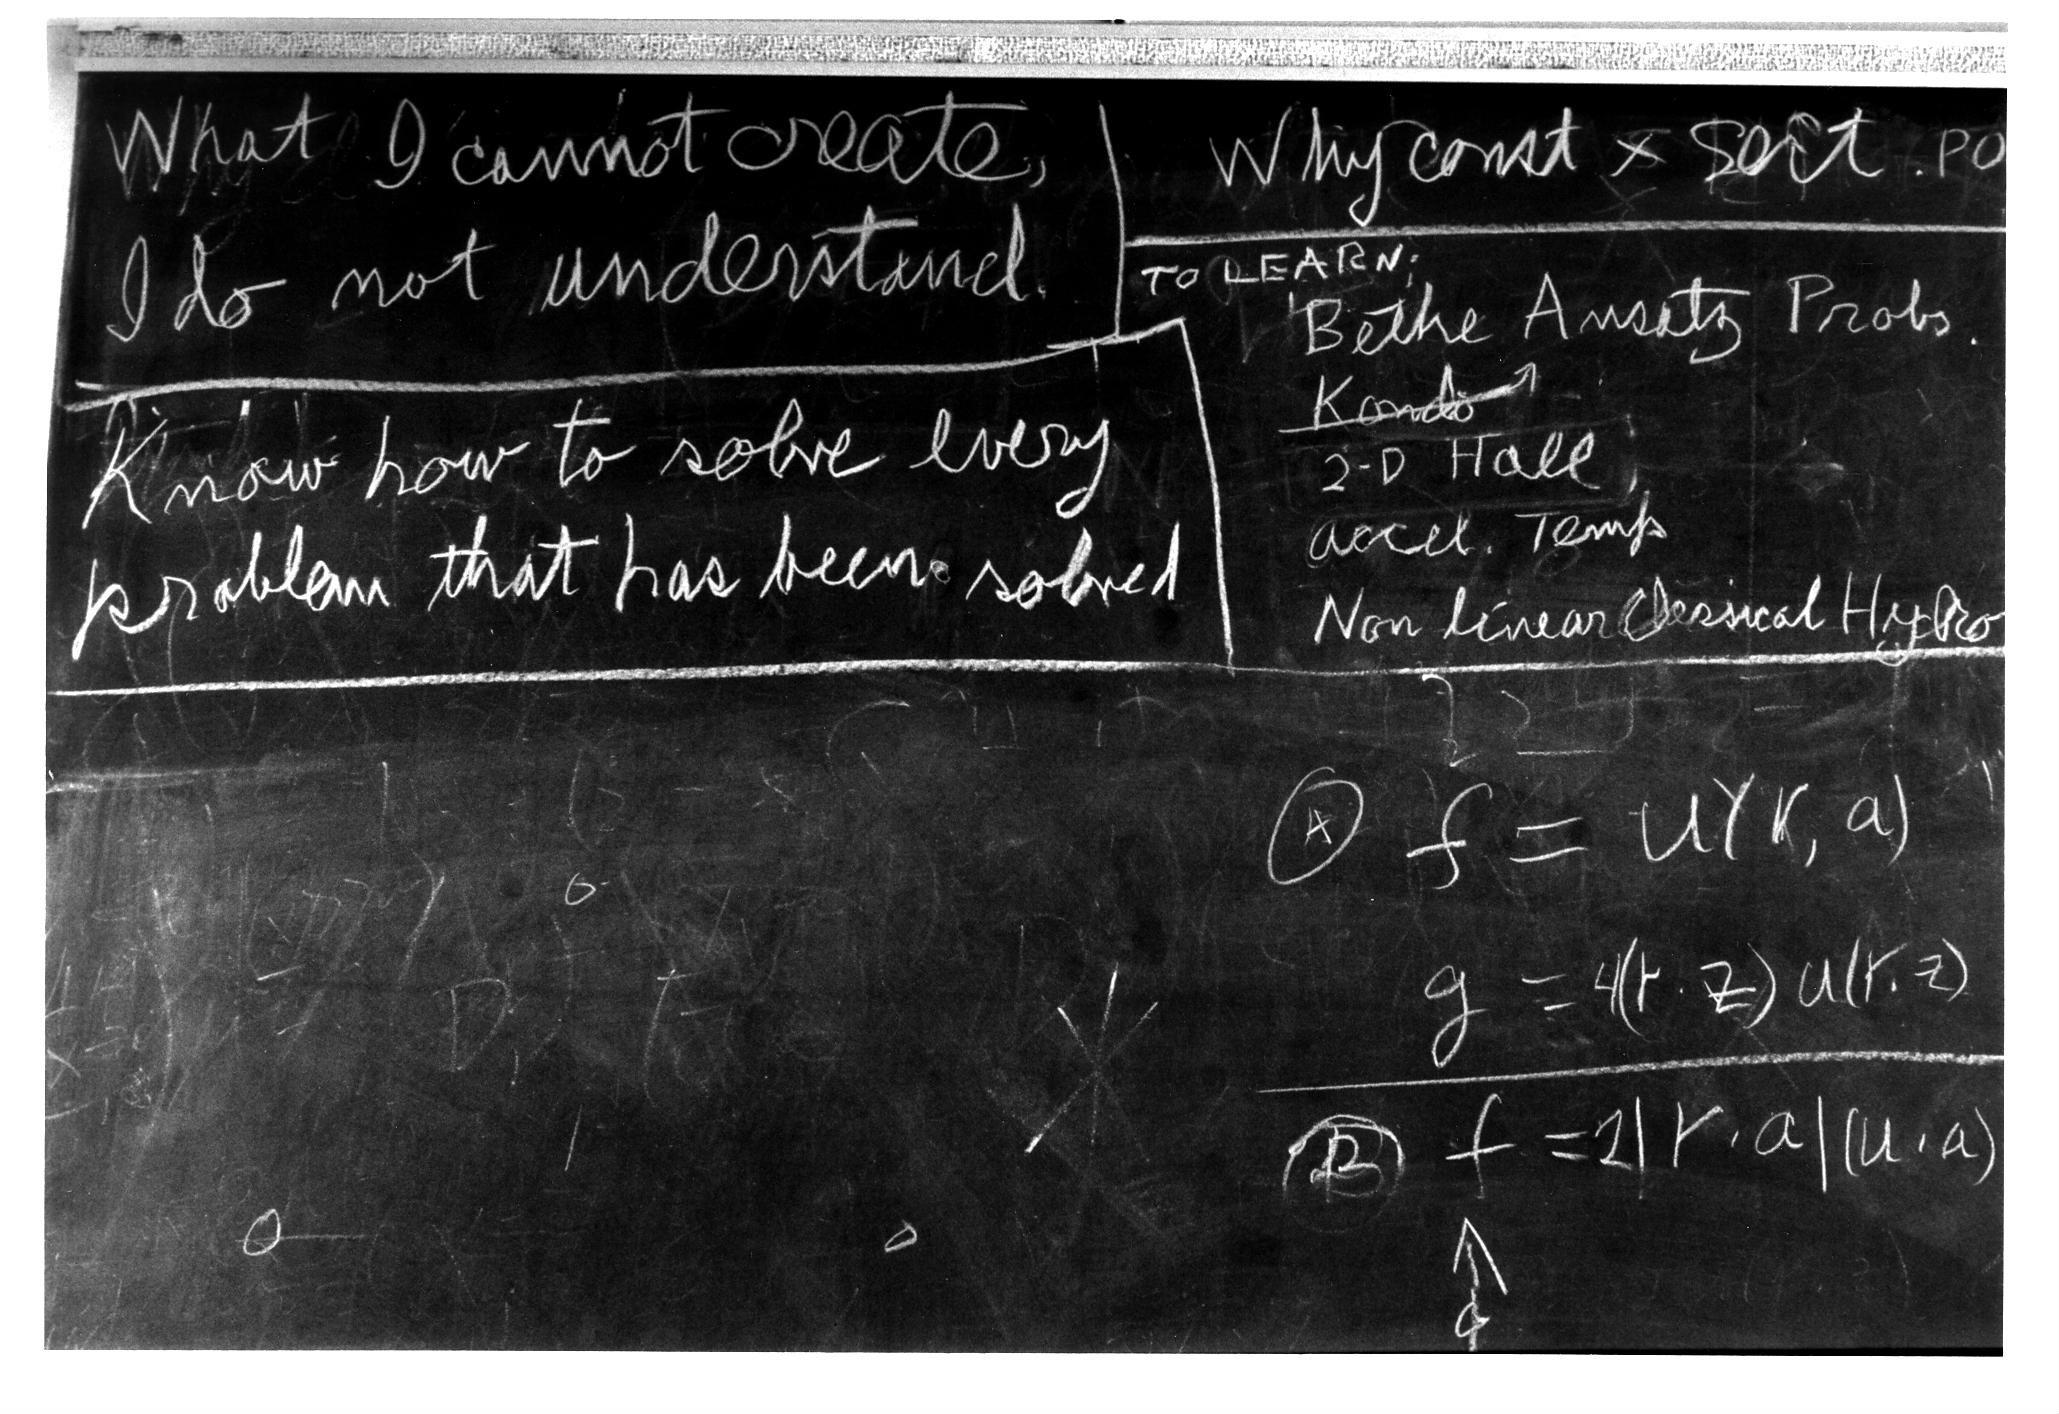 What I cannot create,
I do not understand.
Know how to solve every
problem that has been solved
Why const × sort . PO
TO LEARN:
Bethe Ansatz Probs.
Kondo
2-D Hall
accel. Temp
Non linear Classical Hydro
Ⓐ f = u(r, a)
g = 4(r·z) u(r·z)
Ⓑ f = 2|r·a|(u·a)